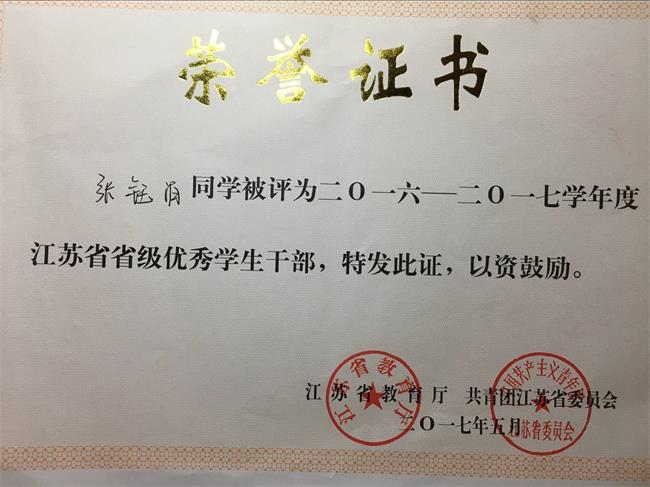 荣誉证书
张 同学被评为二〇一六—二〇一七学年度
江苏省省级优秀学生干部，特发此证，以资鼓励。
江苏省教育厅 共青团江苏省委员会
二〇一七年五月
江苏省教育厅
中国共产主义青年团
江苏省委员会